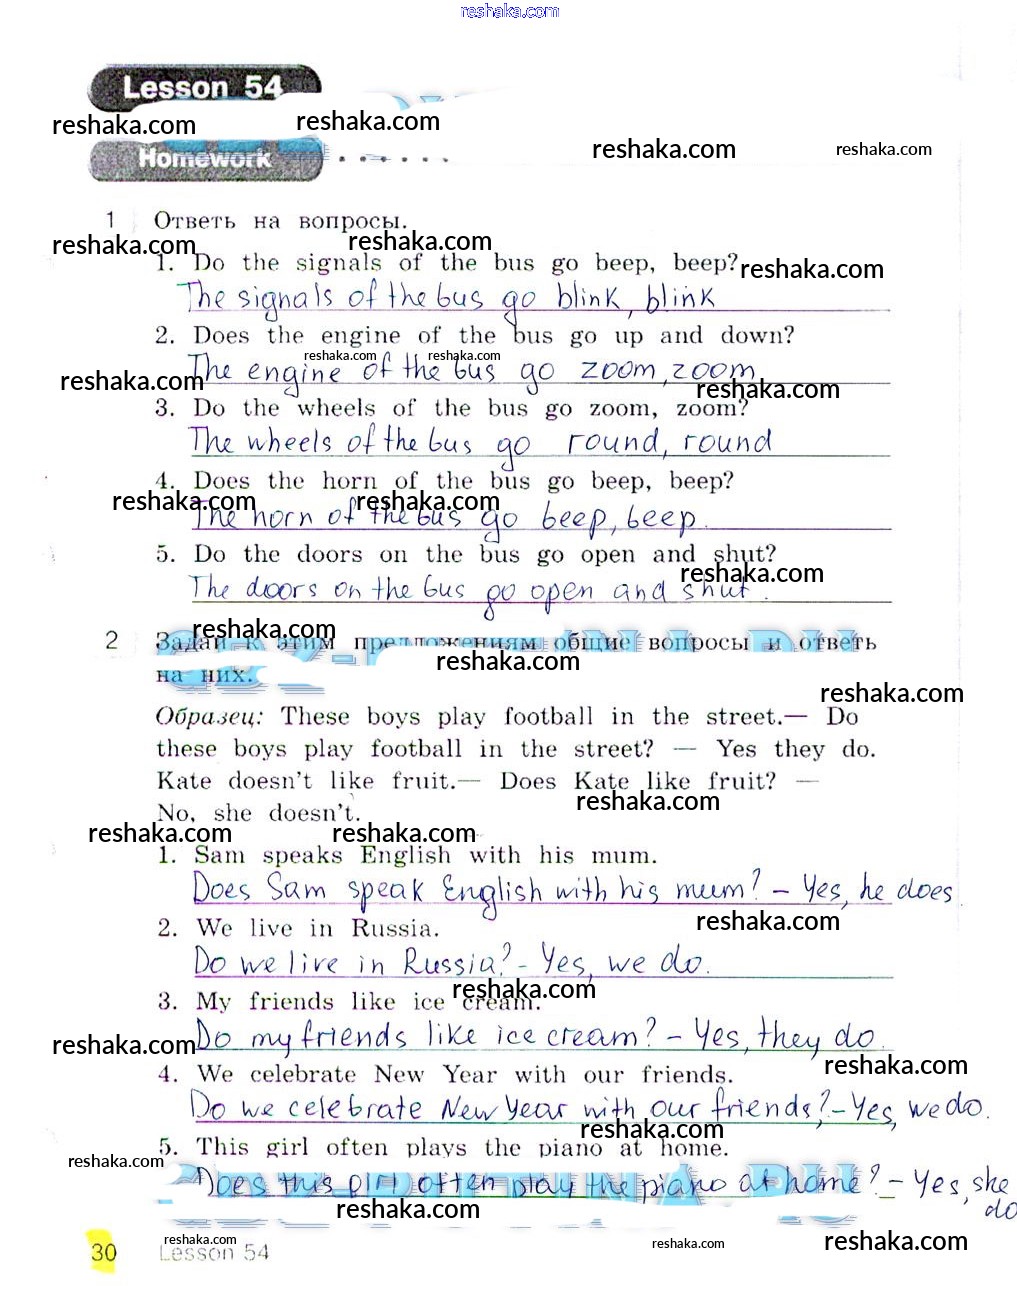 reshaka.com
Lesson 54
reshaka.com reshaka.com reshaka.com reshaka.com
Homework
1 Ответь на вопросы.
reshaka.com reshaka.com
1. Do the signals of the bus go beep, beep?
reshaka.com
The signals of the bus go blink, blink
2. Does the engine of the bus go up and down?
reshaka.com reshaka.com
The engine of the bus go zoom, zoom
reshaka.com reshaka.com
3. Do the wheels of the bus go zoom, zoom?
The wheels of the bus go round, round
4. Does the horn of the bus go beep, beep?
reshaka.com reshaka.com
The horn of the bus go beep, beep.
5. Do the doors on the bus go open and shut?
reshaka.com
The doors on the bus go open and shut.
reshaka.com
2 Задай к этим предложениям общие вопросы и ответь
reshaka.com
на них.
reshaka.com
Образец: These boys play football in the street.— Do
these boys play football in the street? — Yes they do.
Kate doesn't like fruit.— Does Kate like fruit? —
reshaka.com
No, she doesn't.
reshaka.com reshaka.com
1. Sam speaks English with his mum.
Does Sam speak English with his mum? - Yes, he does.
reshaka.com
2. We live in Russia.
Do we live in Russia? - Yes, we do.
reshaka.com
3. My friends like ice cream.
Do my friends like ice cream? - Yes, they do.
reshaka.com reshaka.com
4. We celebrate New Year with our friends.
Do we celebrate New Year with our friends? - Yes, we do.
reshaka.com
5. This girl often plays the piano at home.
reshaka.com
Does this girl often play the piano at home? - Yes, she
do
reshaka.com
30 Lesson 54
reshaka.com reshaka.com reshaka.com